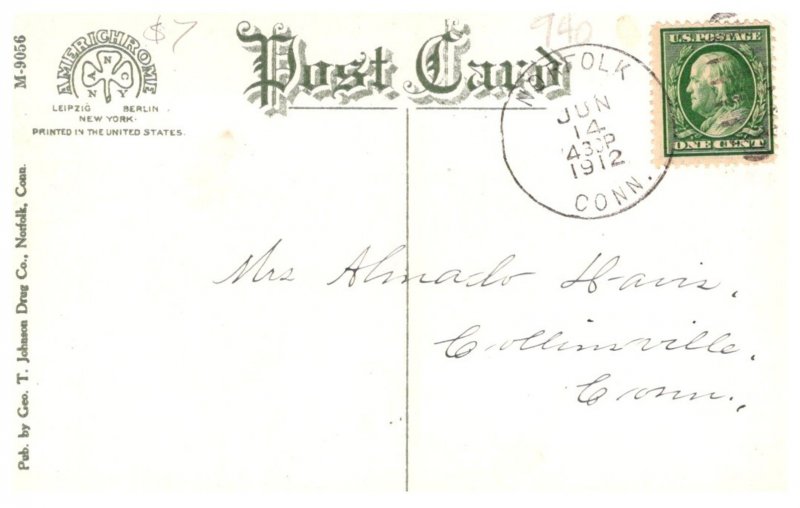 M-9056
AMERICHROME
NANCY
LEIPZIG BERLIN
NEW YORK
PRINTED IN THE UNITED STATES.
$7
Post Card
940
NORFOLK
JUN
14
430P
1912
CONN.
U.S. POSTAGE
ONE CENT
Pub. by Geo. T. Johnson Drug Co., Norfolk, Conn.
Mrs Almado Havis,
Collinsville,
Conn.,